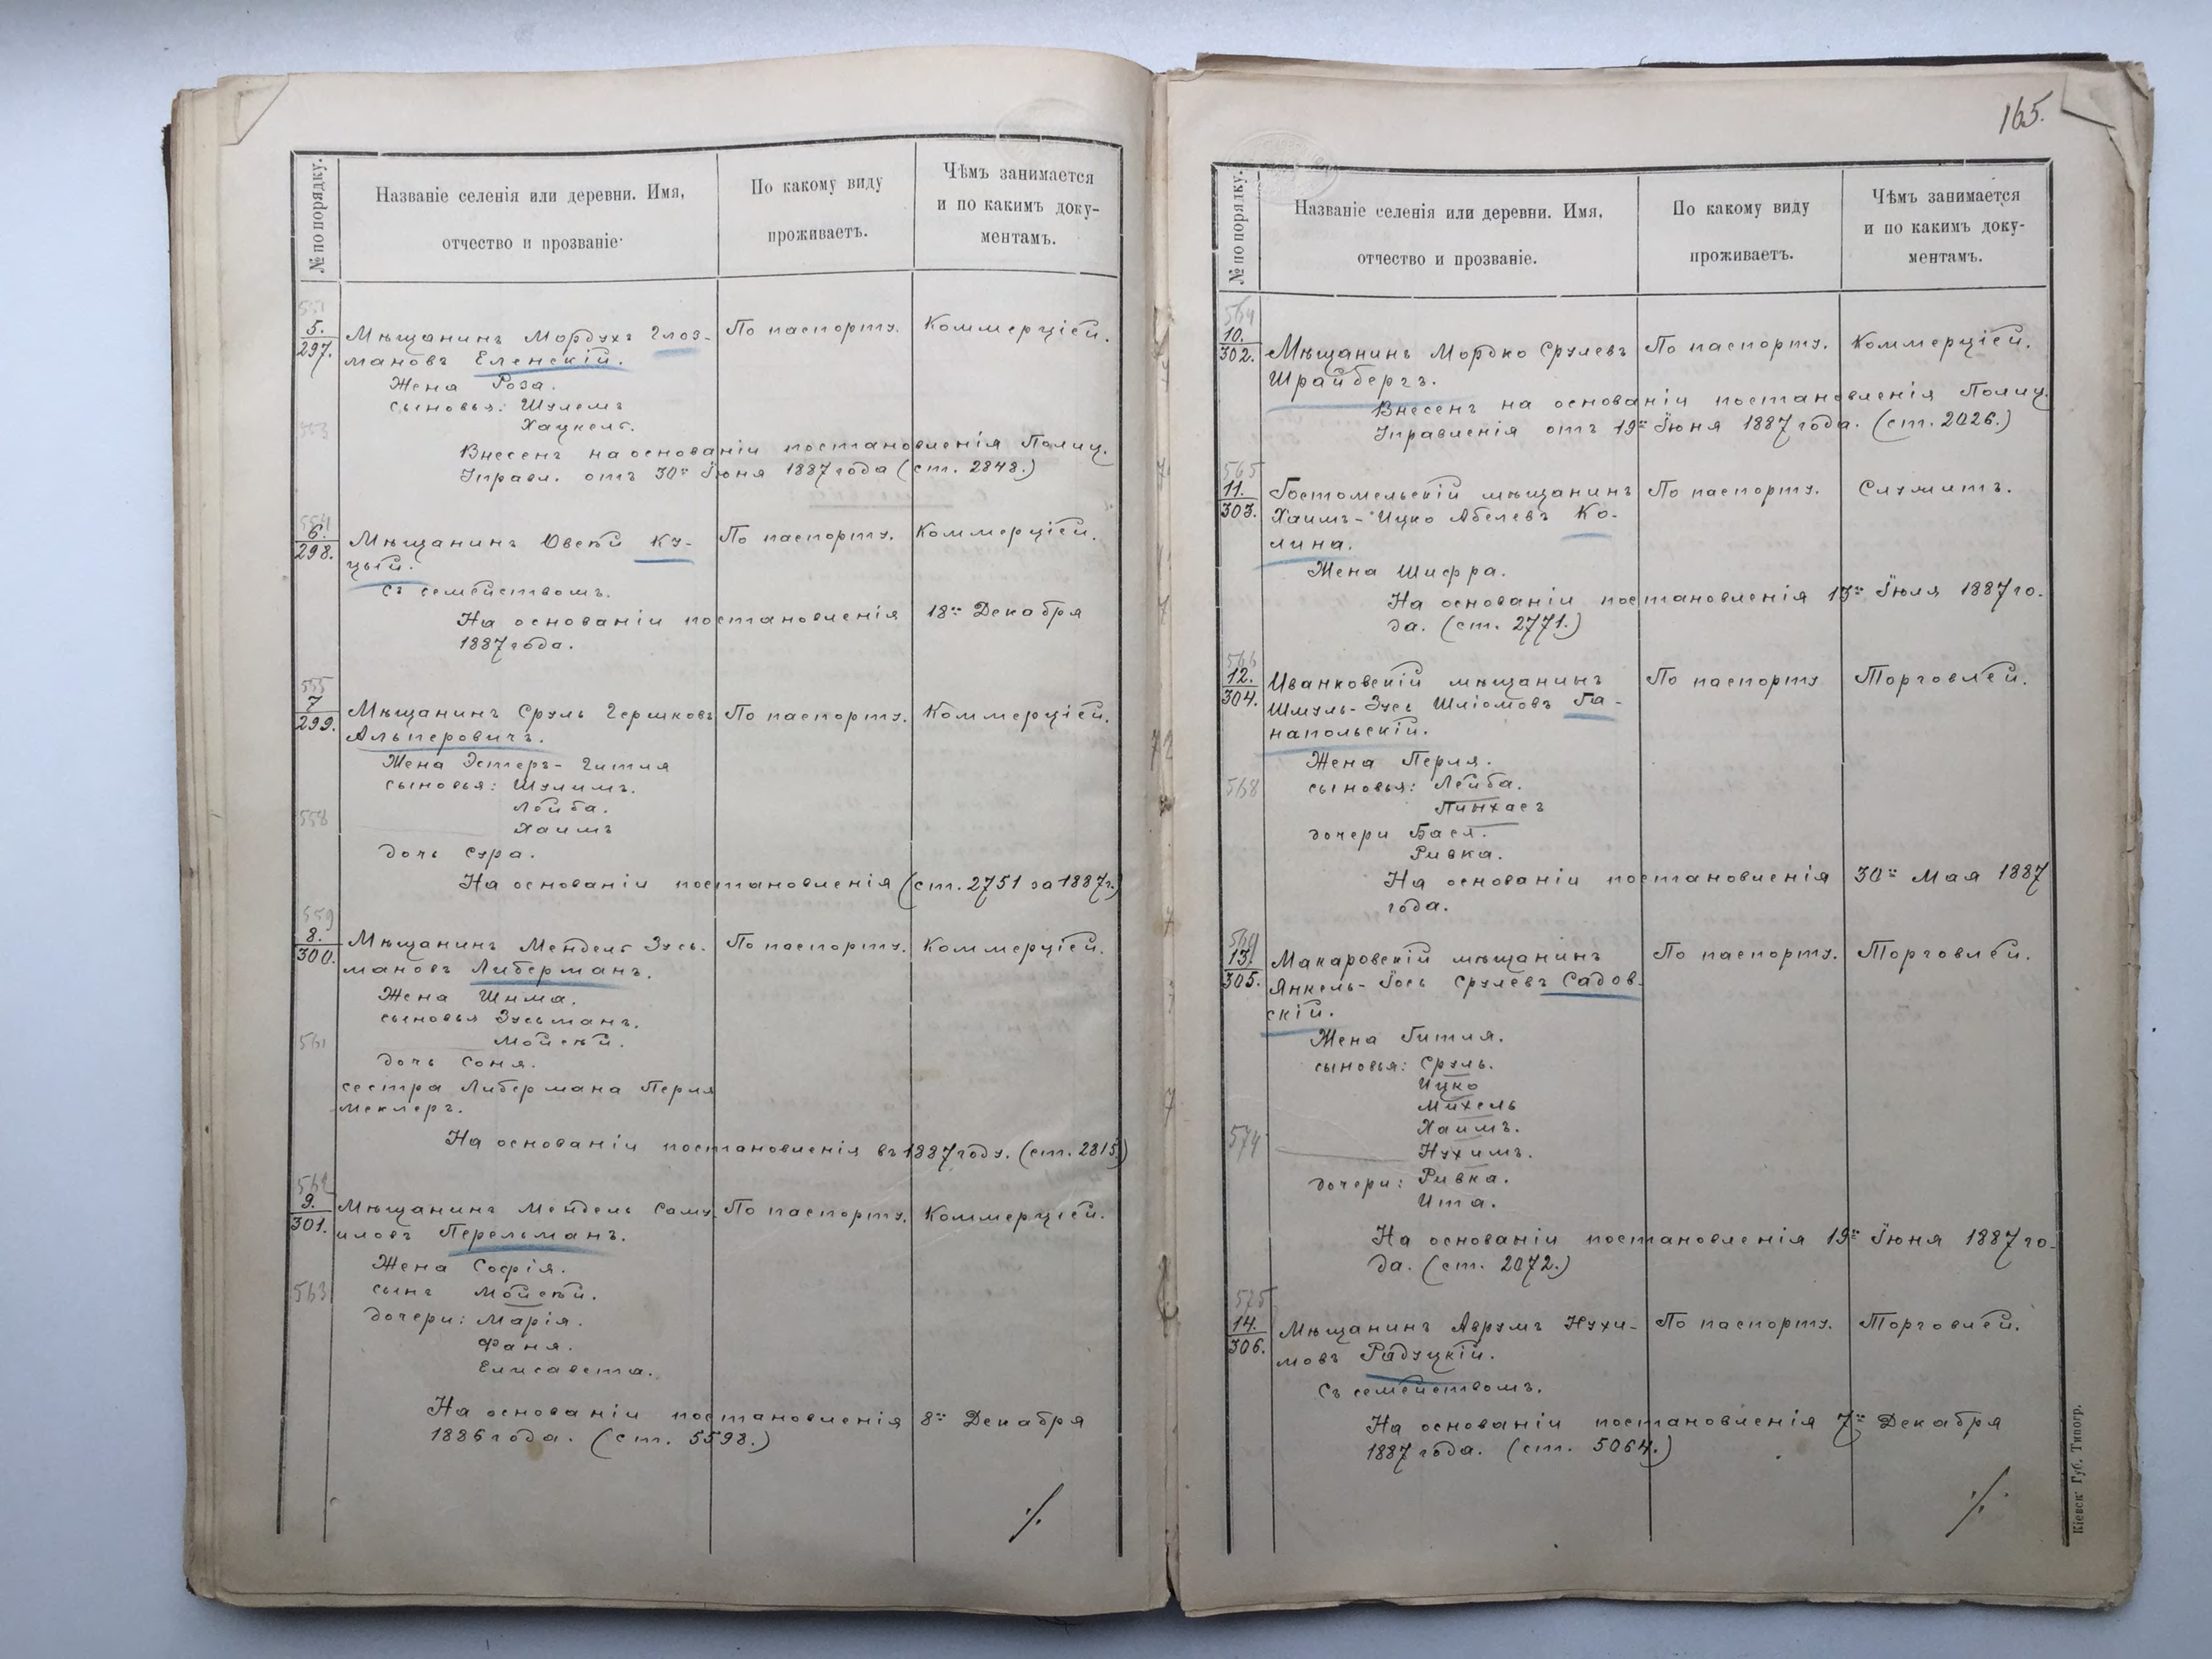 № по порядку.
Названіе селенія или деревни. Имя,
отчество и прозваніе.
По какому виду
проживаетъ.
Чѣмъ занимается
и по какимъ доку-
ментамъ.
551
5.
297.
Мѣщанинъ Мордухъ Глоз-
мановъ Еленскій.
По паспорту.
Коммерціей.
Жена Роза.
сыновья: Шулемъ
Хацкель.
553
Внесенъ на основаніи постановленія Полиц.
Управл. отъ 30го Іюня 1887 года (ст. 2848.)
554
6.
298.
Мѣщанинъ Овсѣй Ку-
цый.
По паспорту.
Коммерціей.
Съ семействомъ.
На основаніи постановленія 18го Декабря
1887 года.
555
7
299.
Мѣщанинъ Сруль Гершковъ
Альперовичъ.
По паспорту.
Коммерціей.
Жена Эстеръ-Гитля
сыновья: Шулимъ.
Лейба.
558
Хаимъ
дочь Сура.
На основаніи постановленія (ст. 2751 за 1887 г.)
559
8.
300.
Мѣщанинъ Мендель Зусь-
мановъ Либерманъ.
По паспорту.
Коммерціей.
Жена Шима.
сыновья Зусьманъ.
561
Мойсѣй.
дочь Соня.
сестра Либермана Перля
Меклеръ.
На основаніи постановленія въ 1887 году. (ст. 2815.)
562
9.
301.
Мѣщанинъ Мендель Саму-
иловъ Перельманъ.
По паспорту.
Коммерціей.
Жена Софія.
563
сынъ Мойсѣй.
дочери: Марія.
Фаня.
Елисавета.
На основаніи постановленія 8го Декабря
1886 года. (ст. 5598.)
165.
№ по порядку.
Названіе селенія или деревни. Имя,
отчество и прозваніе.
По какому виду
проживаетъ.
Чѣмъ занимается
и по какимъ доку-
ментамъ.
564
10.
302.
Мѣщанинъ Мордко Срулевъ
Шрайбергъ.
По паспорту.
Коммерціей.
Внесенъ на основаніи постановленія Полиц.
Управленія отъ 19го Іюня 1887 года. (ст. 2026.)
565
11.
303.
Гостомельскій мѣщанинъ
Хаимъ-Ицко Абелевъ Ко-
лина.
По паспорту.
Служитъ.
Жена Шифра.
На основаніи постановленія 13го Іюля 1887 го-
да. (ст. 2771.)
566
12.
304.
Иванковскій мѣщанинъ
Шмуль-Зусь Шліомовъ Га-
напольскій.
По паспорту
Торговлей.
Жена Перля.
568
сыновья: Лейба.
Пинхасъ
дочери Бася.
Ривка.
На основаніи постановленія 30го Мая 1887
года.
569
13.
305.
Макаровскій мѣщанинъ
Янкель-Іось Срулевъ Садов-
скій.
По паспорту.
Торговлей.
Жена Гитля.
сыновья: Сруль.
Ицко
Михель
Хаимъ.
574
Нухимъ.
дочери: Ривка.
Ита.
На основаніи постановленія 19го Іюня 1887 го-
да. (ст. 2072.)
575
14.
306.
Мѣщанинъ Аврумъ Нухи-
мовъ Радуцкій.
По паспорту.
Торговлей.
Съ семействомъ.
На основаніи постановленія 7го Декабря
1887 года. (ст. 5064.)
Кіевск. Губ. Типогр.